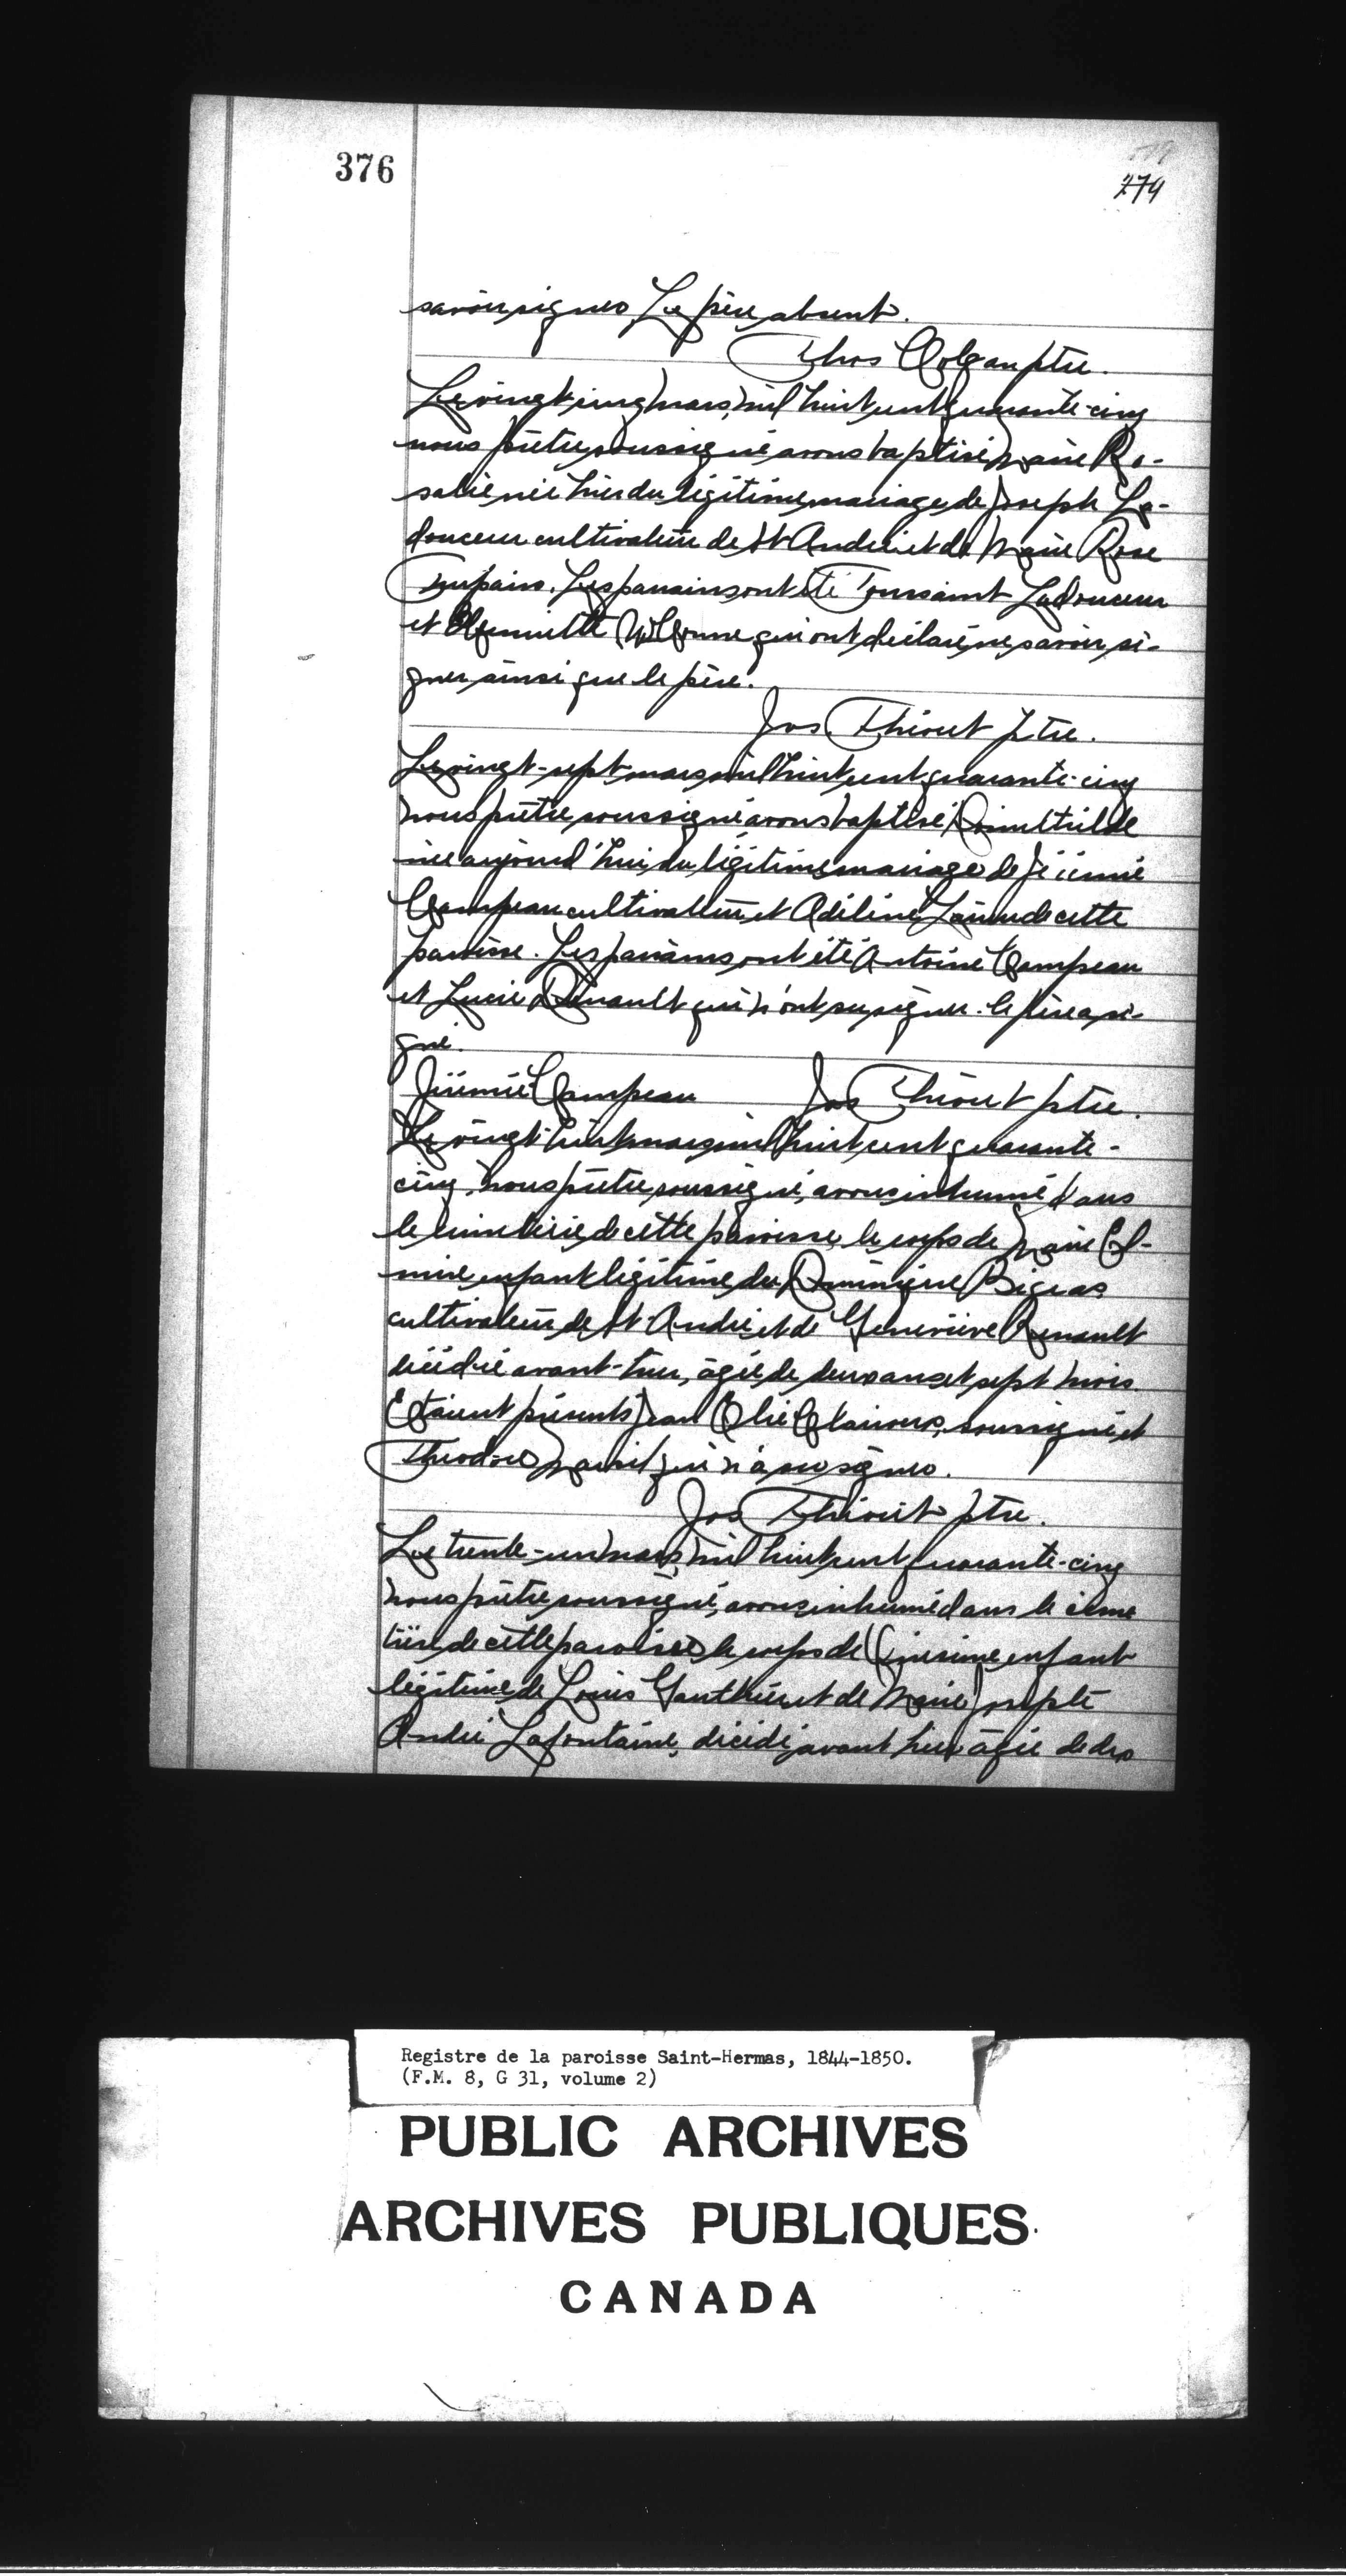 376
279
savoir signer. Le père absent.
Thos Colgan ptre.
Le vingt cinq mars, mil huit cent quarante-cinq
nous prêtre soussigné avons baptisé Marie Ro-
salie née hier du légitime mariage de Joseph La-
douceur cultivateur de St André et de Marie Rose
Turpain. Les parrains ont été Toussaint Ladouceur
et qui ont déclaré ne savoir si-
gner ainsi que le père.
Jos Thiout Ptre.
Le vingt-sept mars mil huit cent quarante-cinq
nous prêtre soussigné avons baptisé Domithilde
née aujourd'hui du légitime mariage de Jérémie
Campeau cultivateur et Adéline de cette
paroisse. Les parrains ont été Antoine Campeau
et Lucie qui n'ont su signer. le père a si-
gné.
Jérémie Campeau Jos Thiout ptre.
Le vingt-huit mars mil huit cent quarante-
cinq, nous prêtre soussigné, avons inhumé dans
le cimetière de cette paroisse le corps de Marie El-
mire enfant légitime de Dominique Bigras
cultivateur de St-André et de Geneviève Renault
décédé avant-hier, âgée de deux ans et sept mois.
Etaient présents Jean Elie soussigné et
Théodore qui n'a su signer.
Jos Thiout ptre.
Le trente-un mars mil huit cent quarante-cinq
nous prêtre soussigné, avons inhumé dans le cime
tière de cette paroisse le corps de enfant
légitime de Louis Gauthier et de Marie Josepte
André Lafontaine, décédé avant hier âgée de dix
Registre de la paroisse Saint-Hermas, 1844-1850.
(F.M. 8, G 31, volume 2)
PUBLIC ARCHIVES
ARCHIVES PUBLIQUES
CANADA